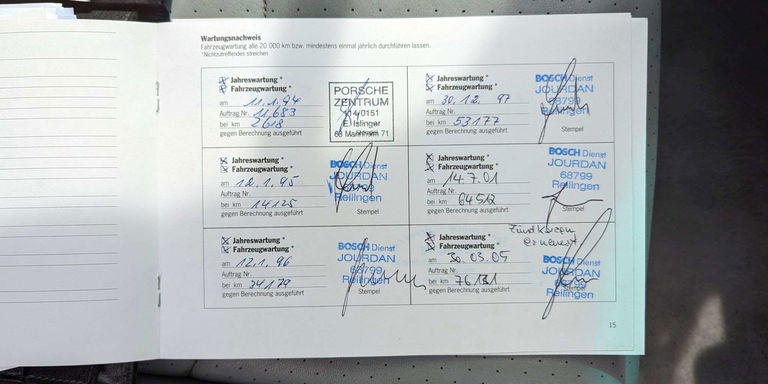 Wartungsnachweis
Fahrzeugwartung alle 20 000 km bzw. mindestens einmal jährlich durchführen lassen.
*Nichtzutreffendes streichen
Jahreswartung *
Fahrzeugwartung *
am 11.1.94
Auftrag Nr. 11.683
bei km 2618
gegen Berechnung ausgeführt
PORSCHE
ZENTRUM
E. Islinger
68 Mannheim 71
Stempel
Jahreswartung *
Fahrzeugwartung *
am 30.12.97
Auftrag Nr.
bei km 53177
gegen Berechnung ausgeführt
BOSCH Dienst
JOURDAN
68799
Reilingen
Stempel
Jahreswartung *
Fahrzeugwartung *
am 12.1.95
Auftrag Nr.
bei km 14125
gegen Berechnung ausgeführt
BOSCH Dienst
JOURDAN
Reilingen
Stempel
Jahreswartung *
Fahrzeugwartung *
am 14.7.01
Auftrag Nr.
bei km 64512
gegen Berechnung ausgeführt
BOSCH Dienst
JOURDAN
68799
Reilingen
Stempel
Jahreswartung *
Fahrzeugwartung *
am 12.1.96
Auftrag Nr.
bei km 34179
gegen Berechnung ausgeführt
BOSCH Dienst
JOURDAN
68799
Reilingen
Stempel
Zündkerzen
erneuert
Jahreswartung *
Fahrzeugwartung *
am 30.03.05
Auftrag Nr.
bei km 76131
gegen Berechnung ausgeführt
BOSCH Dienst
JOURDAN
68799
Reilingen
Stempel
15